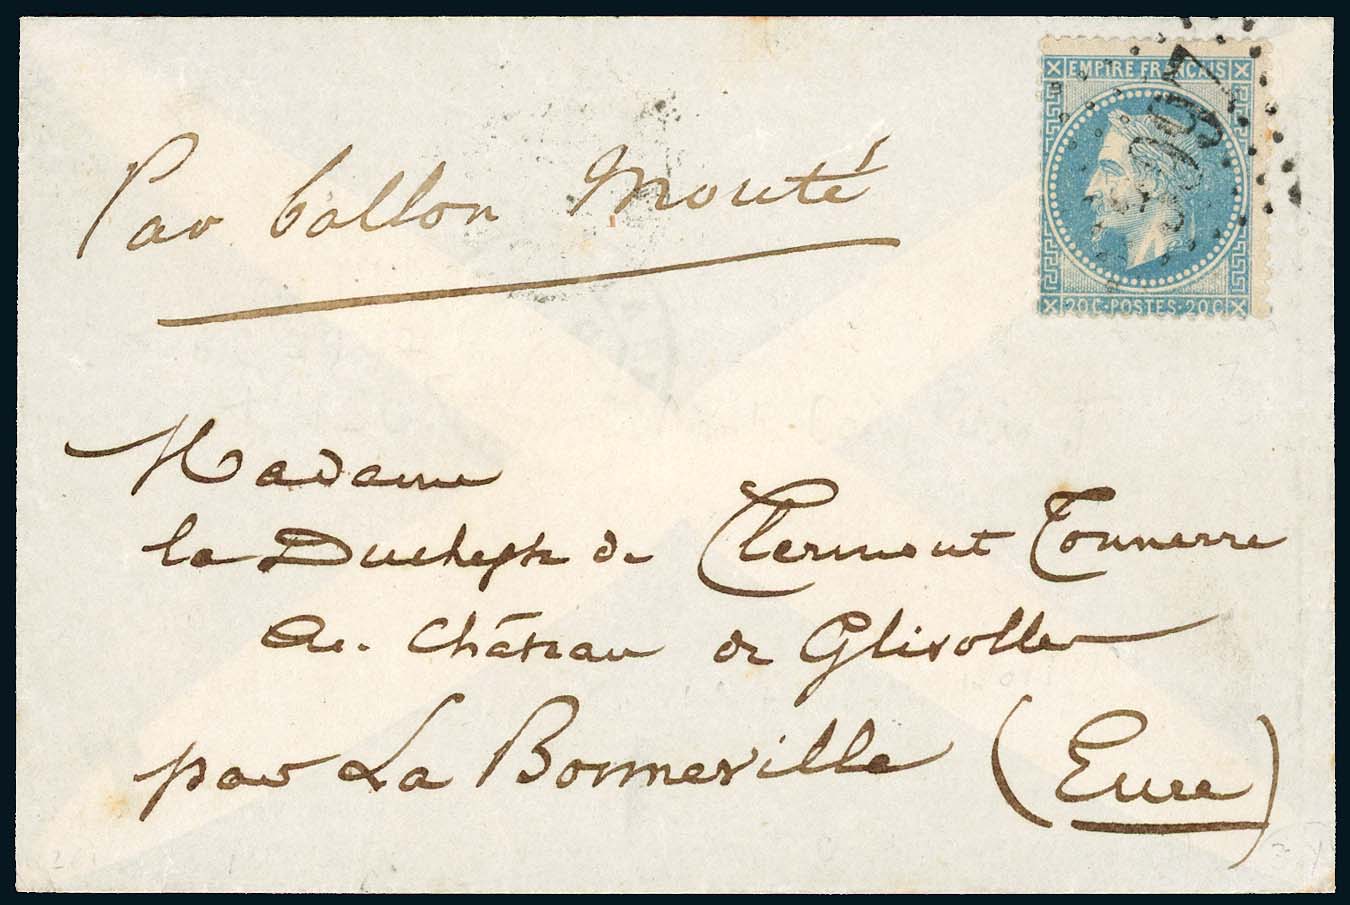 EMPIRE FRANCAIS
20C·POSTES·20C
Par ballon Monté
Madame
la Duchesse de Clermont Tonnerre
Au Château de Glisolles
par La Bonneville (Eure)